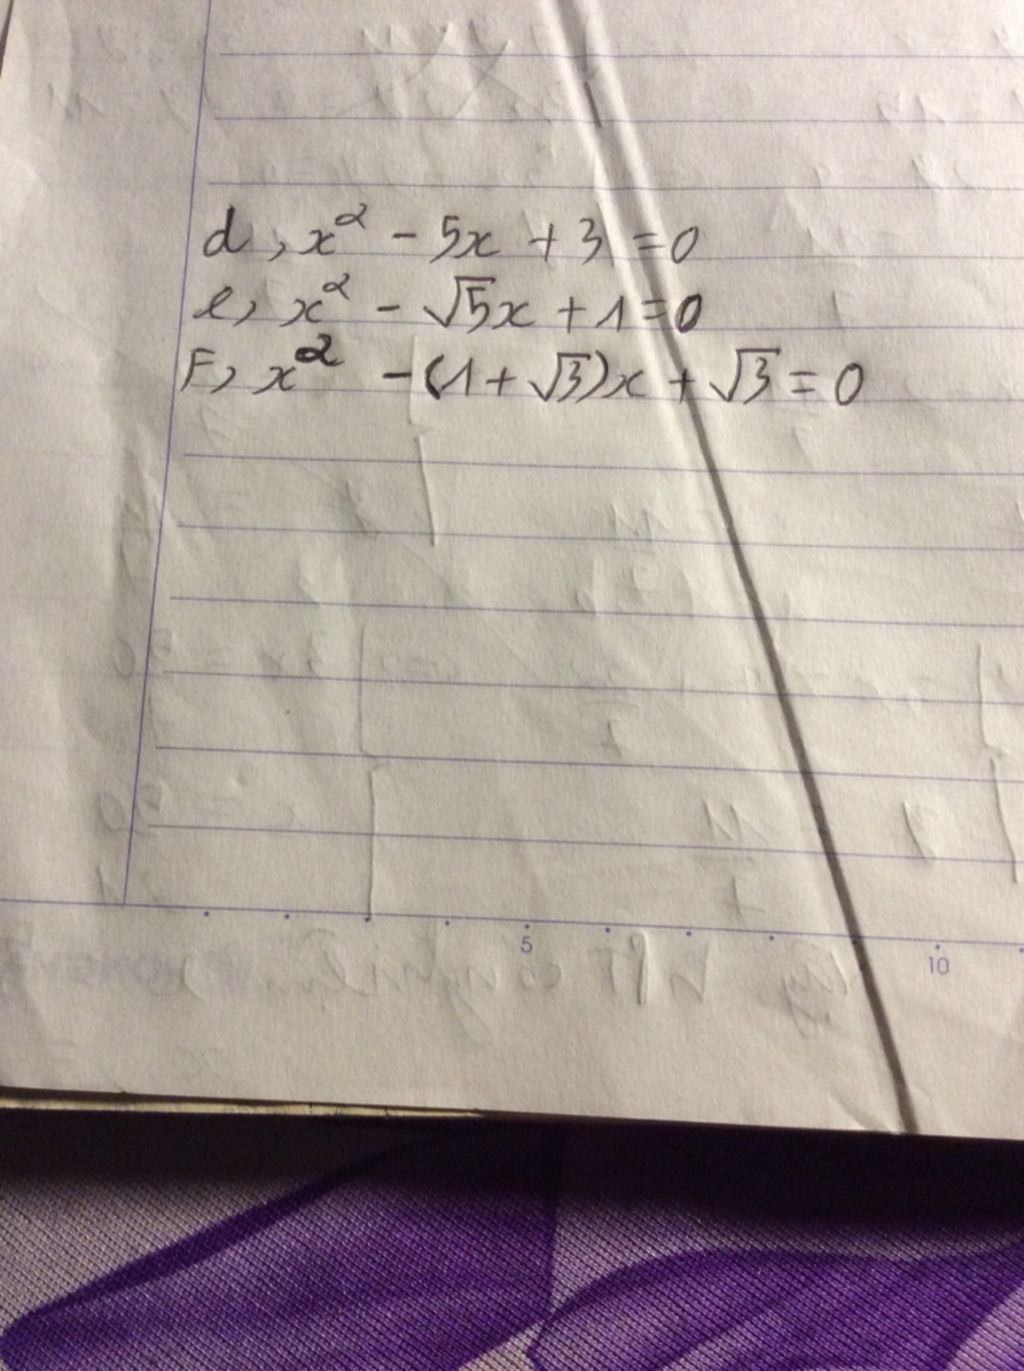 d, x² - 5x + 3 = 0
e, x² - √5x + 1 = 0
F, x² - (1 + √3)x + √3 = 0
5
10